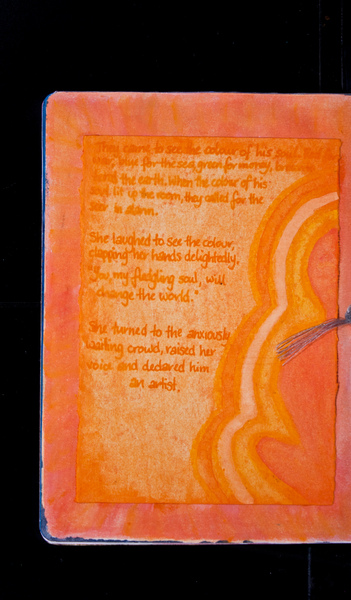 They came to see the colour of his soul, red for
war, blue for the sea, green for money, brown
for the earth. When the colour of his
soul lit up the room, they called for the
seer in alarm.
She laughed to see the colour,
clapping her hands delightedly.
"You, my fledgling soul, will
change the world."
She turned to the anxiously
waiting crowd, raised her
voice and declared him
an artist.